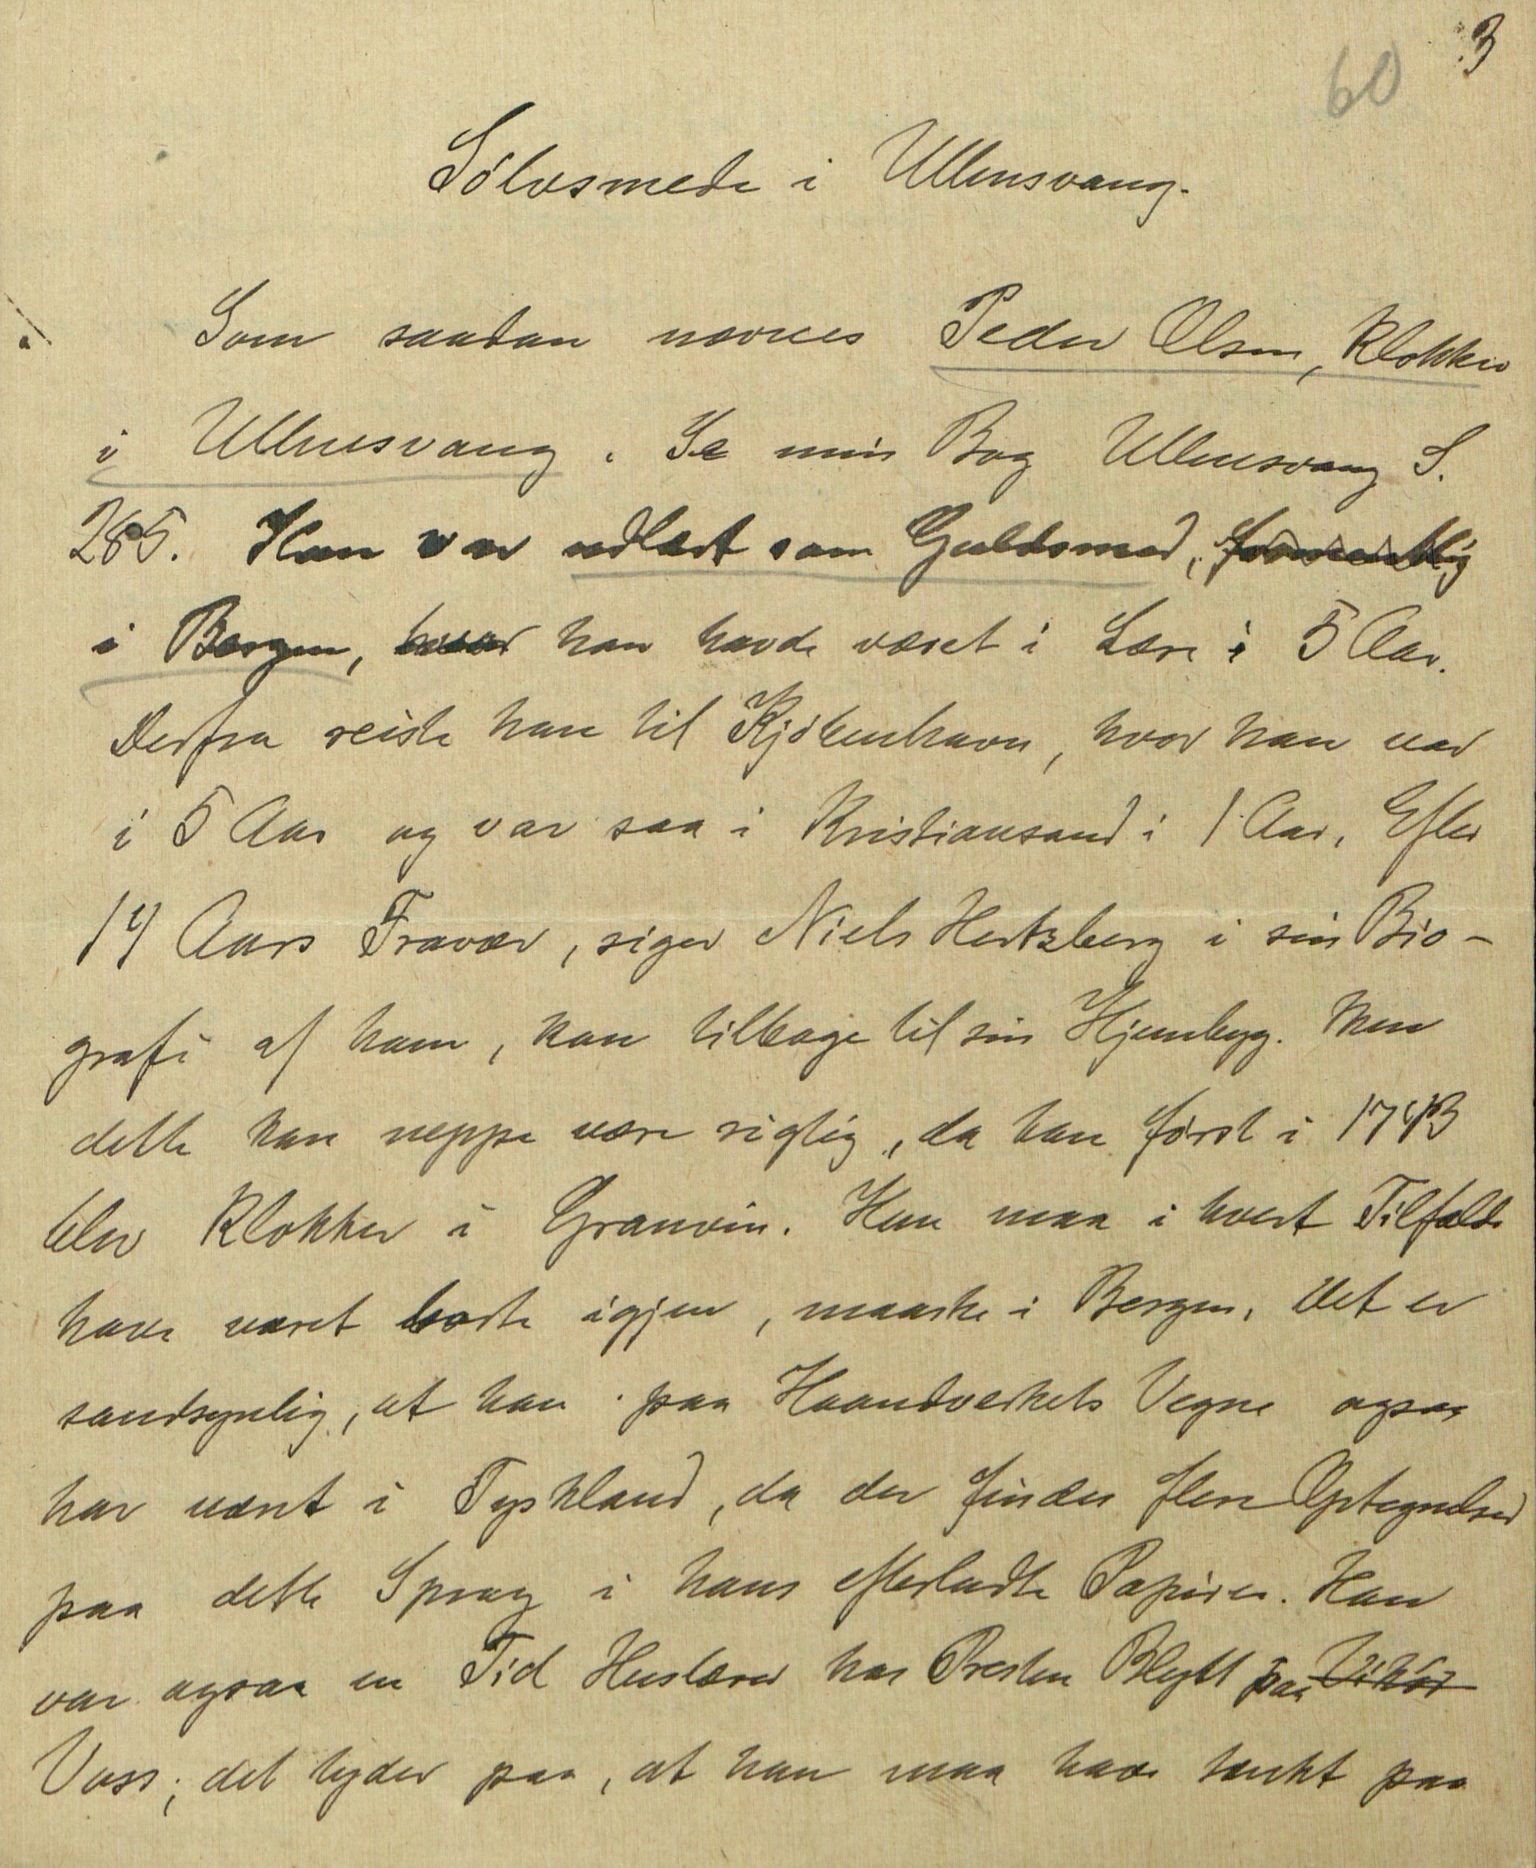 3
60
Sølvsmede i Ullensvang.
Som saadan nævnes Peder Olsen, Klokker
i Ullensvang. Se min Bog Ullensvang S.
285. Han var udlært som Guldsmed, formentlig
i Bergen, hvor han havde været i Lære i 5 Aar.
Derfra reiste han til Kjøbenhavn, hvor han var
i 5 Aar og var saa i Kristiansand i 1 Aar. Efter
14 Aars Fravær, siger Niels Hertzberg i sin Bio-
grafi af ham, kom tilbage til sin Hjembyg. Men
dette kan neppe være rigtig, da han først i 1743
blev Klokker i Granvin. Han maa i hvert Tilfælde
have været borte igjen, maaske i Bergen. Det er
sandsynlig, at han paa Haandverkets Vegne ogsaa
har været i Tyskland, da der findes flere Optegnelser
paa dette Sprog i hans efterladte Papirer. Han
var ogsaa en Tid Huslærer hos Presten Blytt paa Vikør
Voss; det tyder paa, at han maa have tænkt paa